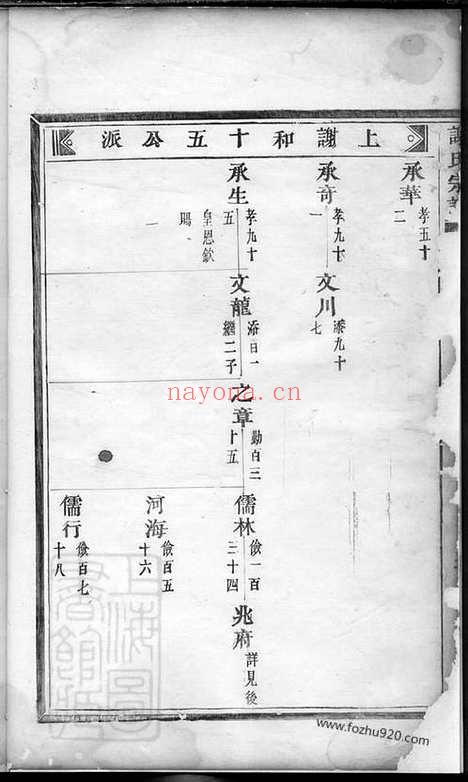 謝氏宗
上謝和十五公派
承華 孝五十二
承奇 孝九十一
文川 添九十七
承生 孝九十五 皇恩欽賜一
文龍 添百一 繼二子
之章 勤百三十五
儒林 儉一百三十四
兆府 詳見後
河海 儉百五十六
儒行 儉百七十八
上海圖書館藏
nayona.cn
www.fozhu920.com